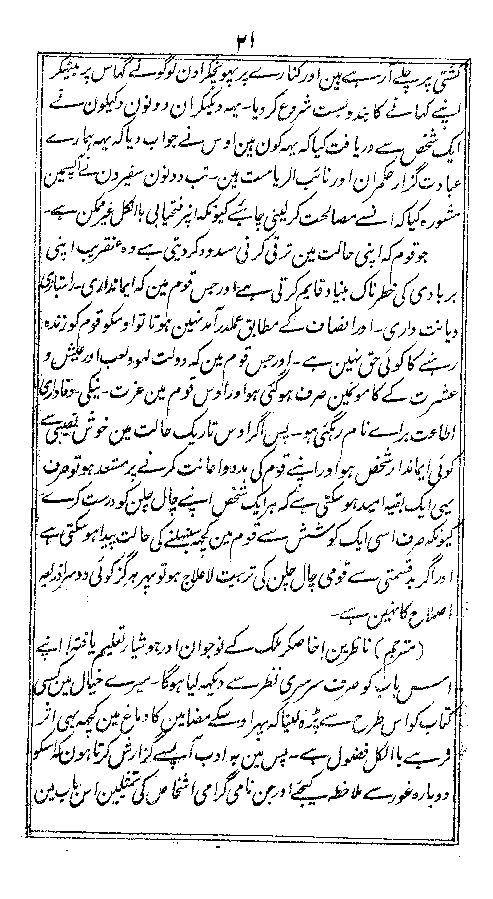 ۲۱
کشتی پر چلے آرہے ہین اور کنارے پر پہونچکر اون لوگونے گہاس پر بیٹہکر
اپنے کہانے کا بندوبست شروع کردیا۔ یہہ دیکہکر ان دونون وکیلون نے
ایک شخص سے دریافت کیا کہ یہہ کون ہین اوس نے جواب دیا کہ یہہ ہمارے
عبادت گزار حکمران اور نائب الریاست ہین۔ تب دونون سفیرون نے آپسمین
مشورہ کیا کہ انسے مصالحت کرلینی چاہئے کیونکہ انپر فتحیابی بالکل غیر ممکن ہے۔
جو قوم کہ اپنی حالت مین ترقی کرنی مسدود کردیتی ہے وہ عنقریب اپنی
بربادی کی خطرناک بنیاد قایم کرتی ہے اور جس قوم مین کہ ایمانداری۔ راستبازی
دیانت داری۔ اور انصاف کے مطابق عملدرآمد نہین ہوتا تو اوسکو قوم کو زندہ
رہنے کا کوئی حق نہین ہے۔ اور جس قوم مین کہ دولت لہو ولعب اور عیش و
عشرت کے کامونمین صرف ہوگئی ہو اور اوس قوم مین عزت۔ نیکی۔ وفاداری
اطاعت براے نام رہگئی ہو۔ پس اگر اوس تاریک حالت مین خوش نصیبی سے
کوئی ایماندار شخص ہو اور اپنے قوم کی مدد و اعانت کرنے پر مستعد ہو تو صرف
یہی ایک بقیہ امید ہوسکتی ہے کہ ہر ایک شخص اپنے چال چلن کو درست کرے
کیونکہ صرف اسی ایک کوشش سے قوم مین کچہہ سنبہلنے کی حالت پیدا ہوسکتی ہے
اور اگر بدقسمتی سے قومی چال چلن کی تربیت لاعلاج ہو تو پہر ہرگز کوئی دوسرا ذریعہ
اصلاح کا نہین ہے۔
(مترجم) ناظرین! خاصکر ملک کے نوجوان اور جوشیار تعلیم یافتہ! اپنے
اس باب کو صرف سرسری نظر سے دیکہہ لیا ہوگا۔ میرے خیال مین کسی
کتاب کو اس طرح سے پڑہ لینا کہ پہر اوسکے مضامین کا دماغ مین کچہہ بہی اثر
نرہے بالکل فضول ہے۔ پس مین بہ ادب آپسے گزارش کرتا ہون کہ اسکو
دوبارہ غور سے ملاحظہ کیجئے اور جن نامی گرامی اشخاص کی تمثیلین اس باب مین